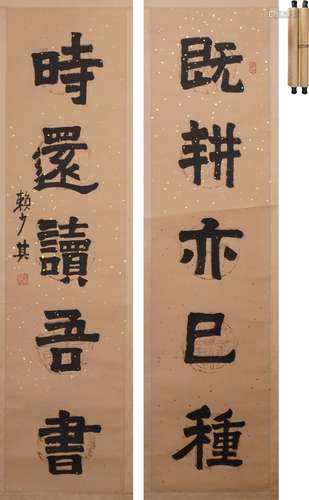 既耕亦已種
時還讀吾書
賴少其